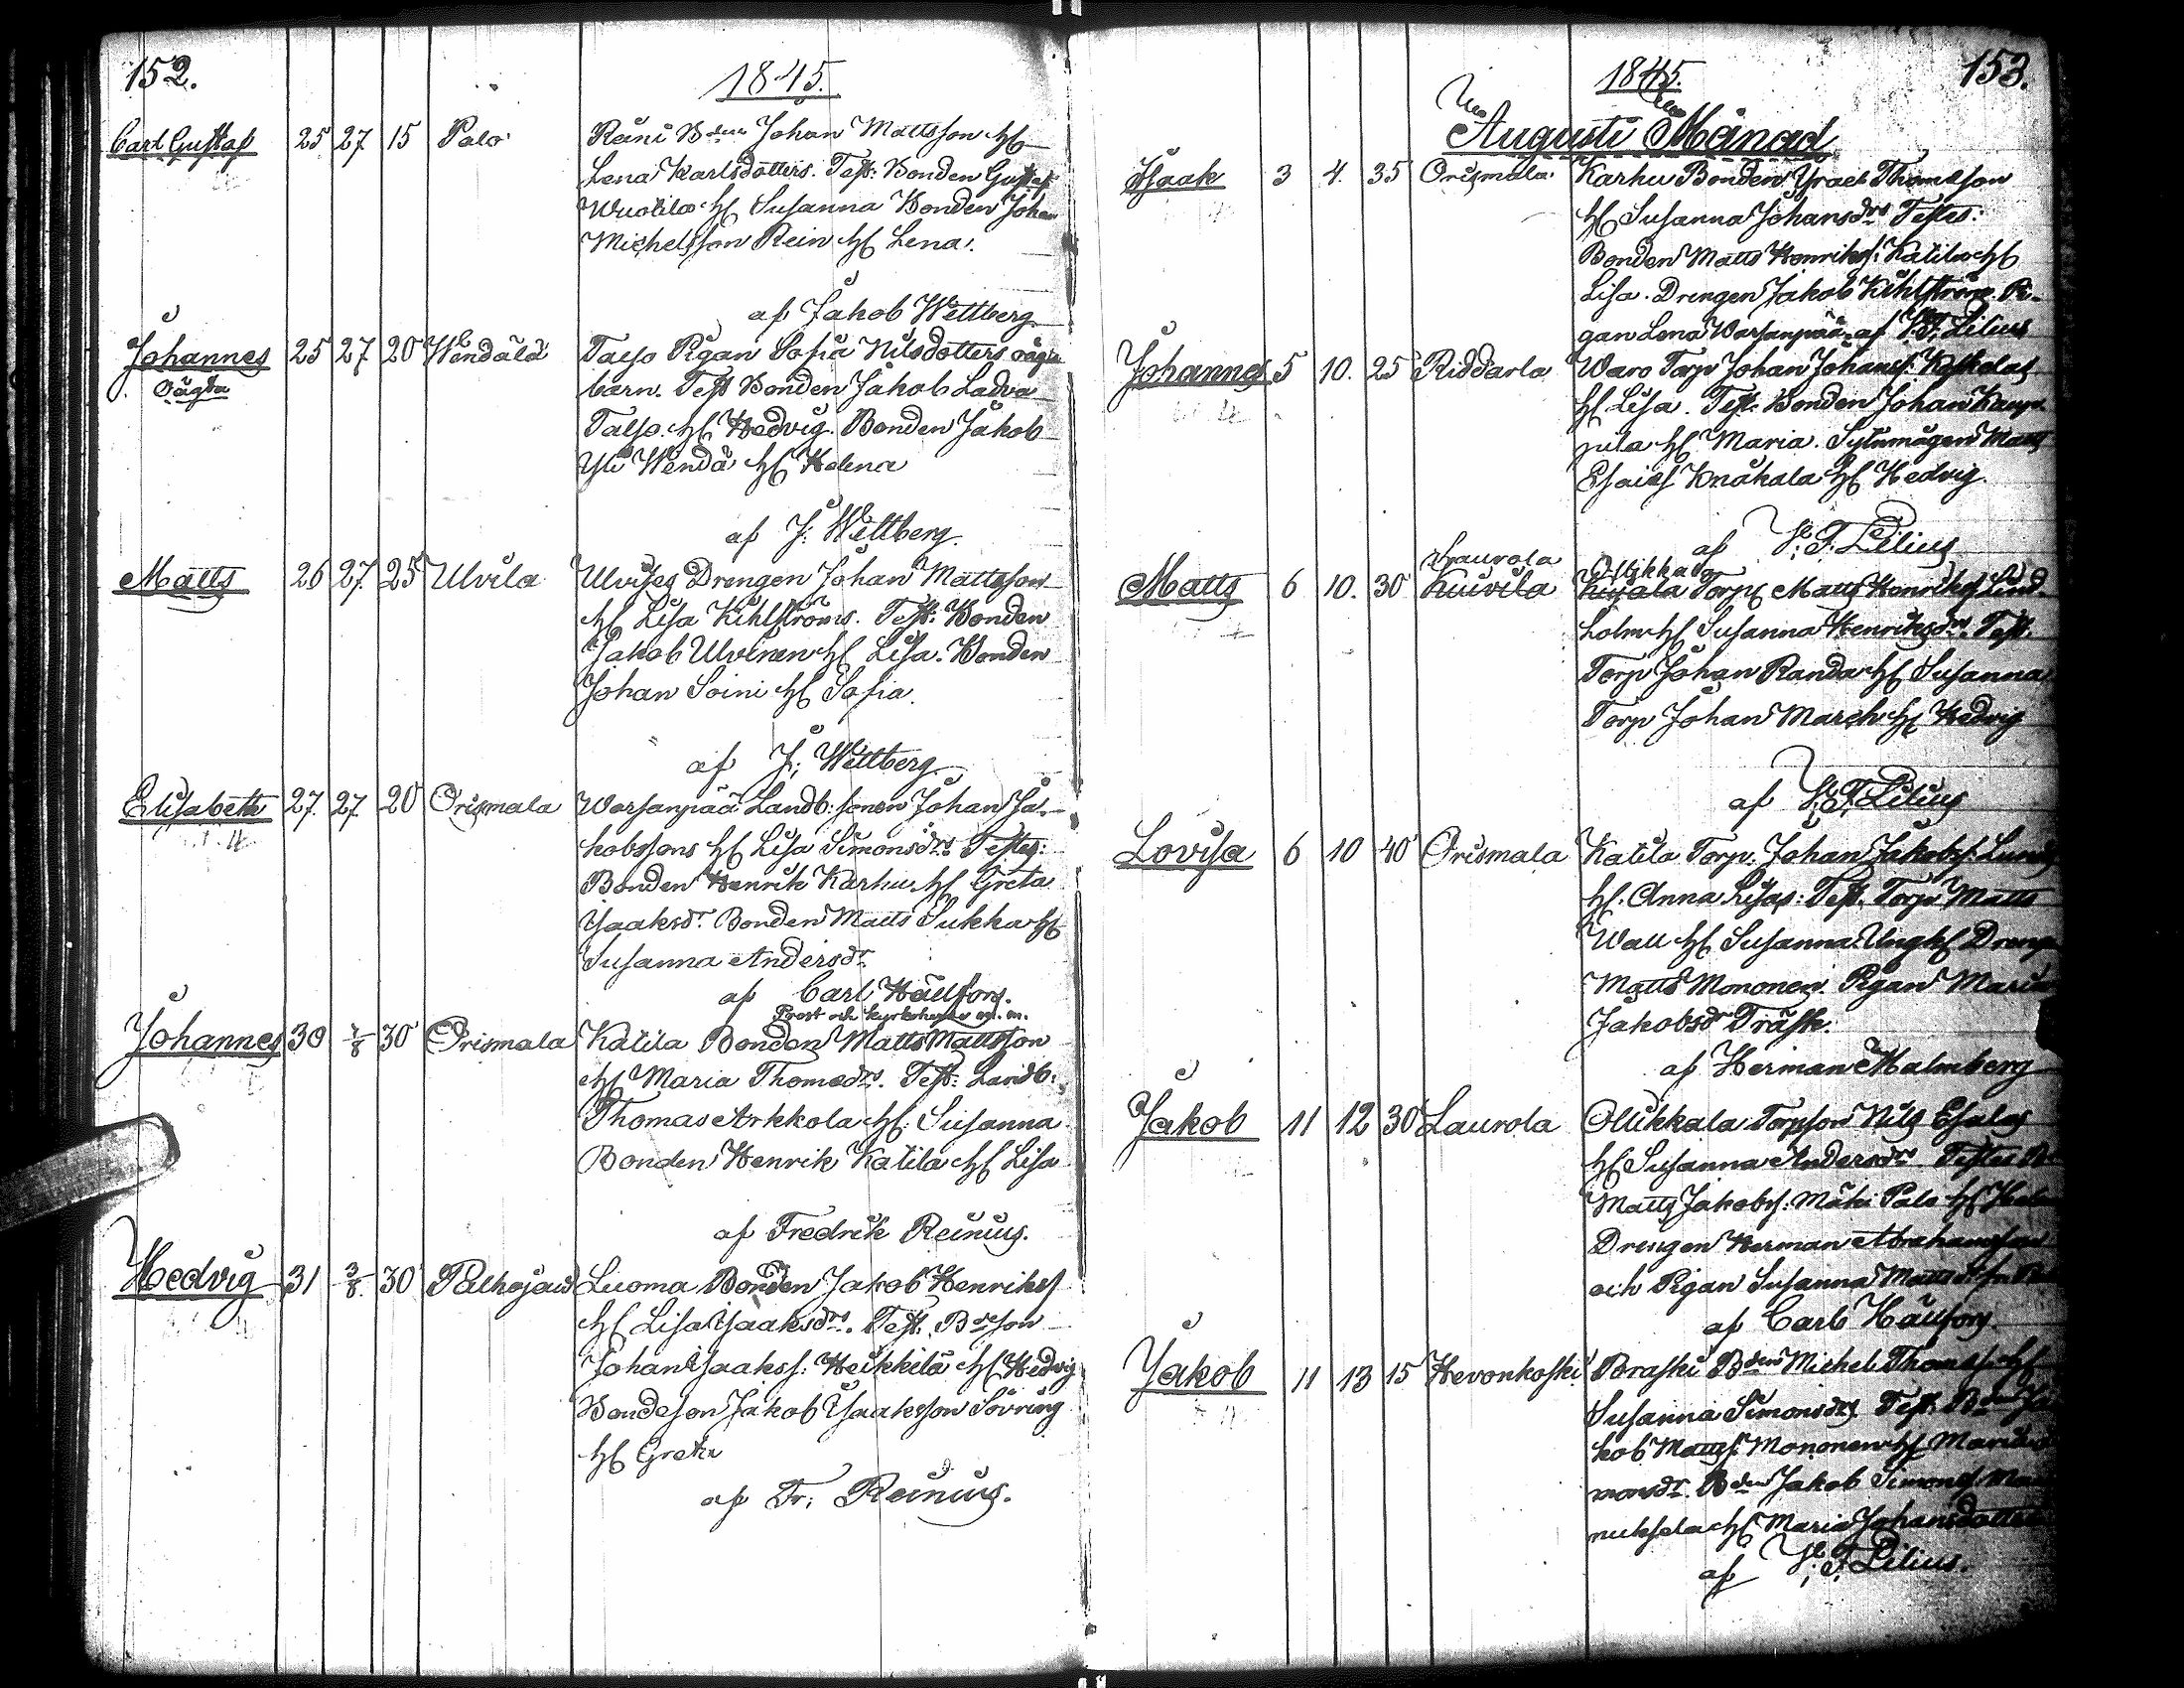 152.
1845.
Carl Gustaf 25 27 15 Palo Reini Bden Johan Mattsson Hu
Lena Karlsdotters. Test: Bonden Gustaf
Wuotila Hu Susanna Bonden Johan
Michelsson Rein Hu Lena.
af Jakob Wettberg
Johannes 25 27 20 Wendälä Taljo Pigan Sofia Nilsdotters oägta
Oägta barn. Test Bonden Jakob Ladva
Taljo. Hu Hedvig. Bonden Jakob
Yli Wendä Hu Helena
af J: Wettberg.
Matts 26 27. 25 Ulvila Ulvises Drengen Johan Mattsson
Hu Lisa Kihlströms. Test: Bonden
Jakob Ulvinen Hu Lisa. Bonden
Johan Soini Hu Sofia.
af J; Wettberg.
Elisabeth 27. 27 20 Orismala Warsanpää Landb: sonen Johan Ja-
kobssons Hu Lisa Simonsdrs Testes:
Bonden Henrik Karhu Hu Greta
Isaaksdr. Bonden Matts Sukka Hu
Susanna Andersdr
af Carl Hällfors.
Prost och kyrkoherde m. m.
Johannes 30 2/8 30 Orismala Katila Bonden Matts Mattsson
Hu Maria Thomædrs. Test: Landb:
Thomas Arkkola Hu. Susanna
Bonden Henrik Katila Hu Lisa
af Fredrik Reinius.
Hedvig 31 3/8. 30 Palhojais Luoma Bonden Jakob Henrikss
Hu Lisa Isaaksdrs. Test. Bdeson
Johan Isaakss: Heikkilä Hu Hedvig
Bondeson Jakob Isaaksson Sövring
Hu Greta
af Fr; Reinius.
1845.
153.
Augusti Månad
Isaak 3 4. 35 Orismala Karhu Bonden Israel Thomasson
Hu Susanna Johansdrs Testes:
Bonden Matts Henrikss: Katila Hu
Lisa. Drengen Jakob Kihlström. Pi-
gan Lena Warsanpää. af J. F. Lilius
Johannes 5 10. 25 Riddarla Waro Torp Johan Johanss: Kaskolas
Hu Lisa. Test: Bonden Johan Kaup
pila Hu Maria. Sytnmågen Matts
Esaias Knåkala Hu Hedvig.
af J. F. Lilius
Laurola Ollikkala
Matts 6 10. 30 Kuivila Torp Matts Henrikss Lind-
holm Hu Susanna Henriksdrs. Test.
Torp Johan Randa Hu Susanna
Torp Johan March Hu Hedvig
af J. F. Lilius
Lovisa 6 10 40 Orismala Katila Torp. Johan Jakobs: Lunds
Hu. Anna Lisas: Test. Torp Matts
Wall Hu Susanna. Ungk Dreng
Matts Mononen. Pigan Maria
Jakobsdr Träsk.
af Herman Malmberg
Jakob 11 12 30 Laurola Ollikkala Torpson Nils Esalas
Hu Susanna Andersdrs Testes
Matts Jakobs: Mäki Palo Hu
Drengen Herman Abrahamsson
och Pigan Susanna Mattsdr
af Carl Hällfors
Jakob 11 13 15 Hevonkoski Braski Bden Michel Thomass Hu
Susanna Simonsdrs Test: Bden Ja
kob Matts: Mononen Hu Maria
monsdr. Bden Jakob Simons
nuksela Hu Maria Johansdotter
af J. F. Lilius.